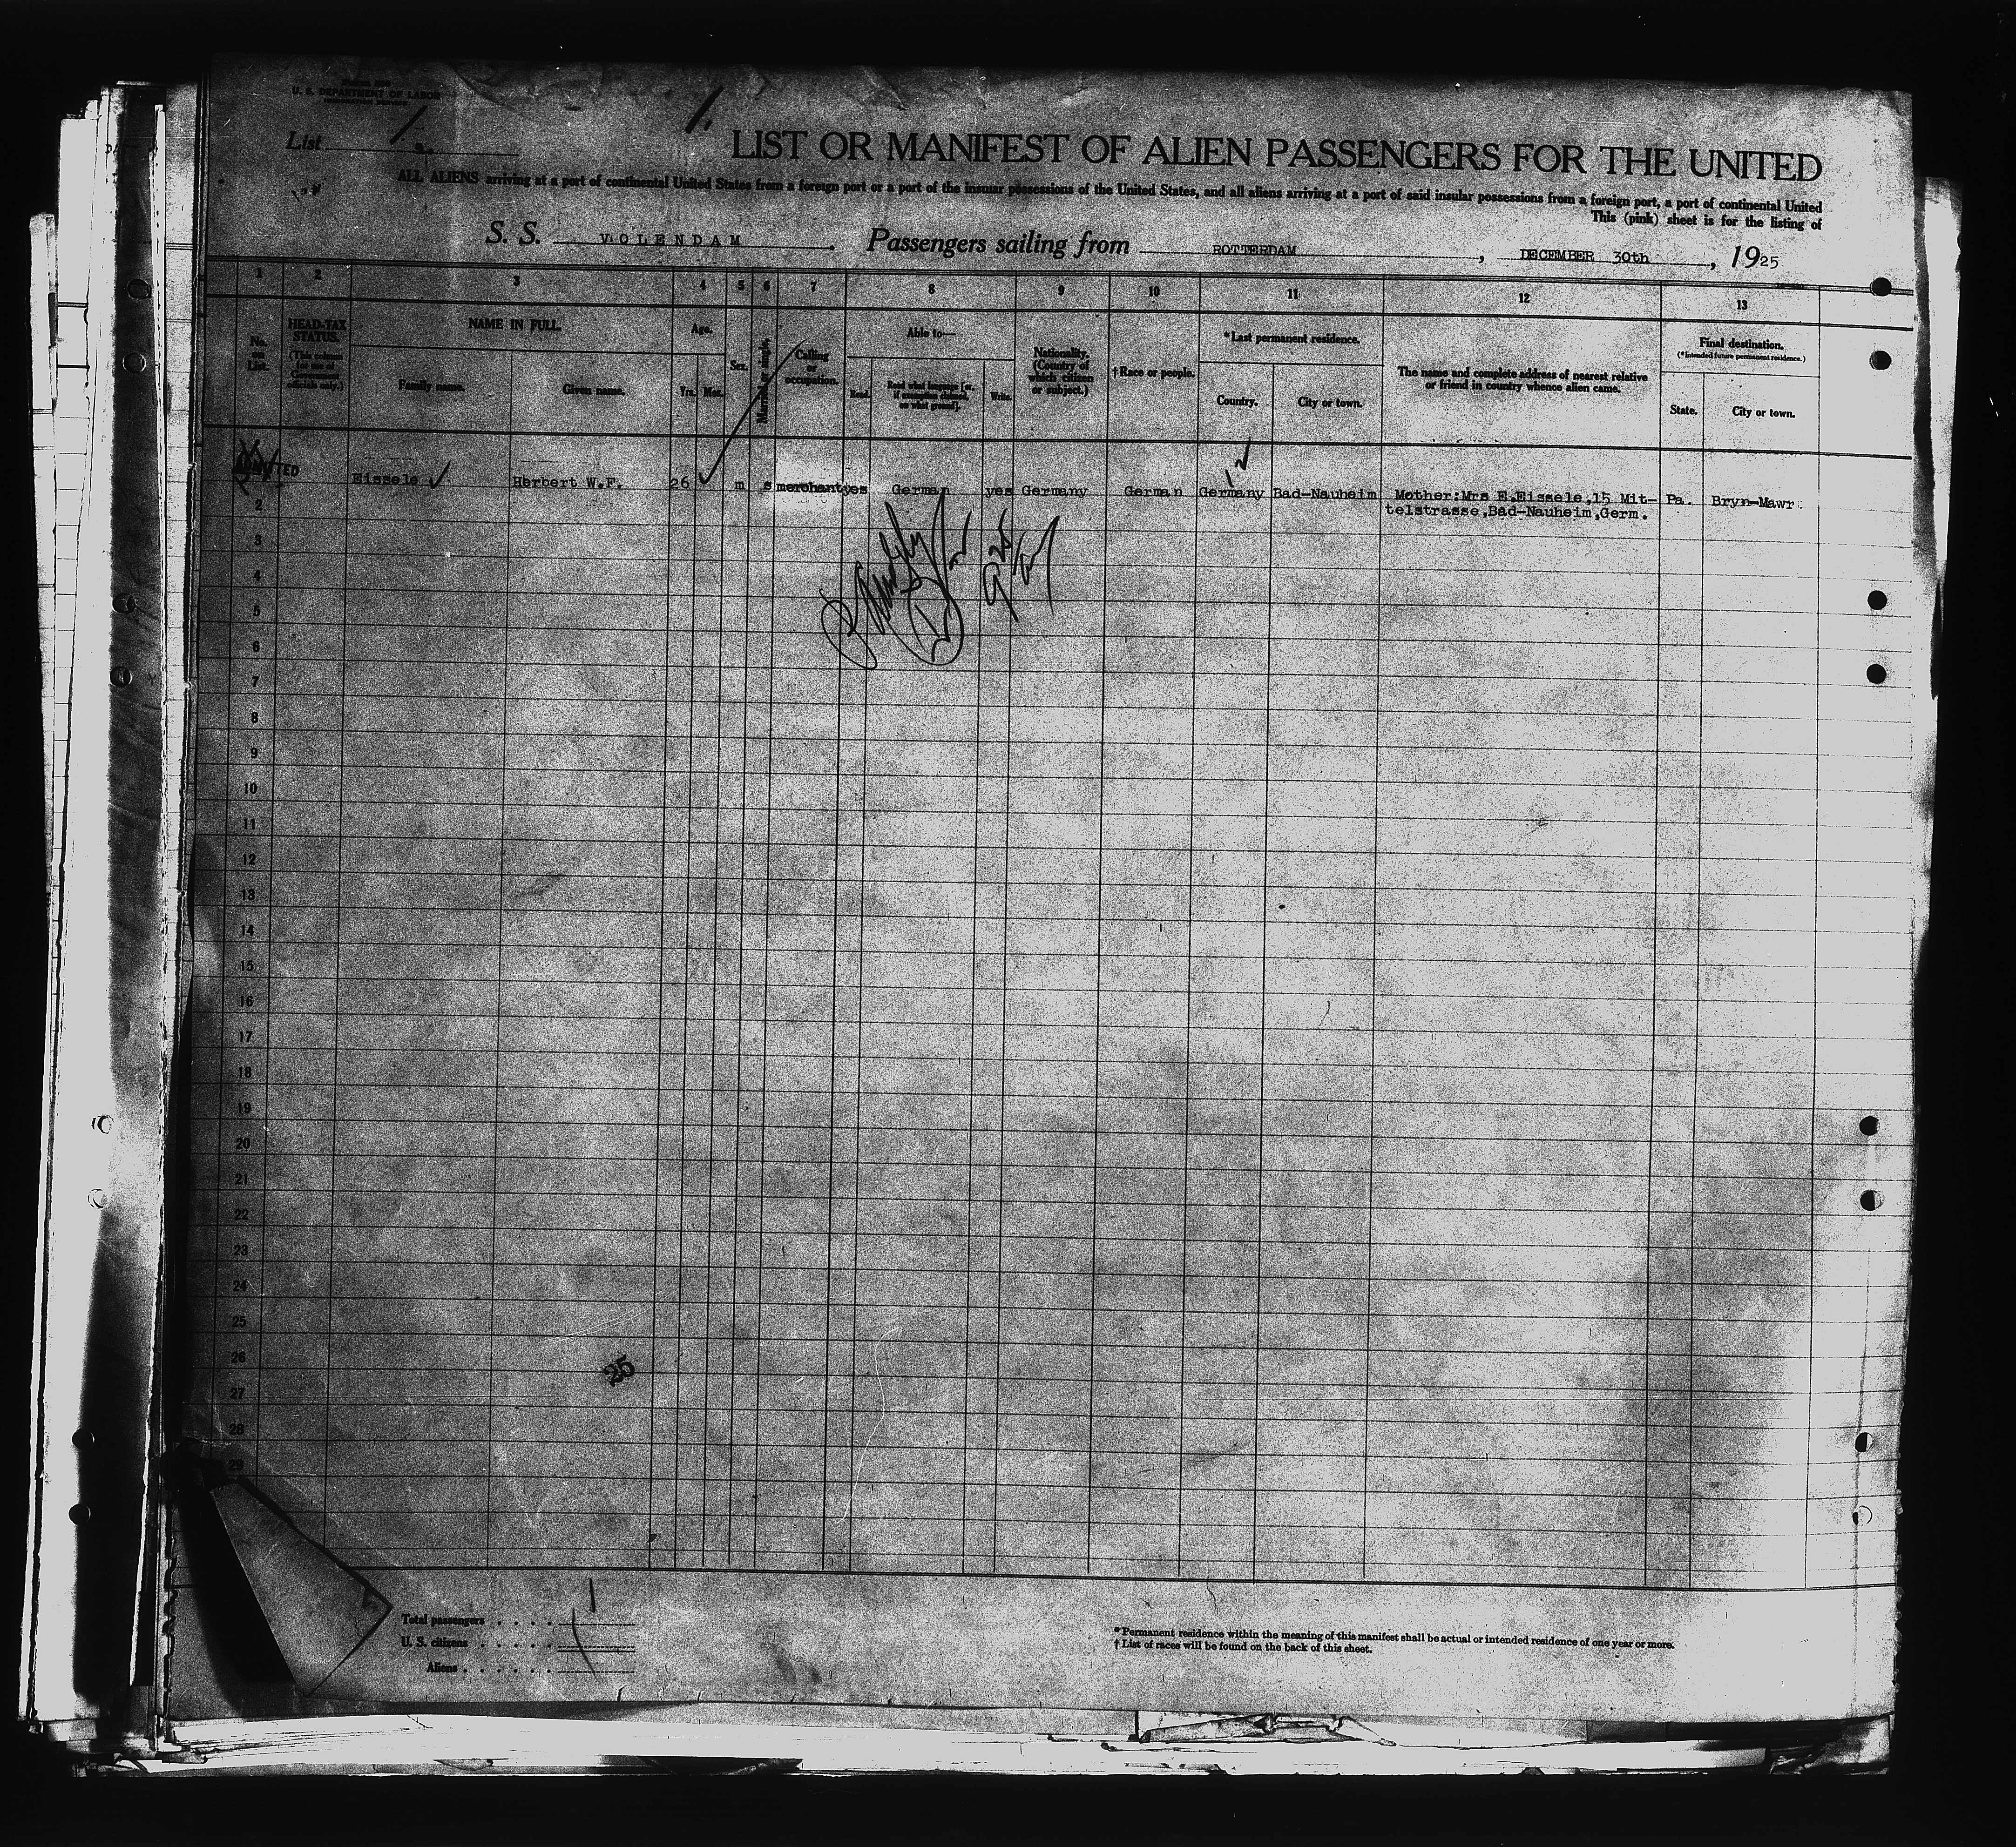 U. S. DEPARTMENT OF LABOR
IMMIGRATION SERVICE
List 1.
1.
LIST OR MANIFEST OF ALIEN PASSENGERS FOR THE UNITED
ALL ALIENS arriving at a port of continental United States from a foreign port or a port of the insular possessions of the United States, and all aliens arriving at a port of said insular possessions from a foreign port, a port of continental United
This (pink) sheet is for the listing of
S. S. VOLENDAM . Passengers sailing from ROTTERDAM , DECEMBER 30th , 1925
1 2 3 4 5 6 7 8 9 10 11 12 13
No. on List.
HEAD-TAX STATUS.
(This column for use of Government officials only.)
NAME IN FULL.
Family name. Given name.
Age.
Yrs. Mos.
Sex.
Married or single.
Calling or occupation.
Able to—
Read. Read what language [or, if exemption claimed, on what ground]. Write.
Nationality. (Country of which citizen or subject.)
† Race or people.
*Last permanent residence.
Country. City or town.
The name and complete address of nearest relative or friend in country whence alien came.
Final destination.
(*Intended future permanent residence.)
State. City or town.
ADMITTED Eissele Herbert W.F. 26 m s merchant yes German yes Germany German Germany Bad-Nauheim Mother:Mrs E.Eissele,15 Mit- Pa. Bryn-Mawr.
telstrasse,Bad-Nauheim,Germ.
2
3
4
5
6
7
8
9
10
11
12
13
14
15
16
17
18
19
20
21
22
23
24
25
26
25
27
28
29
Total passengers . . . . 1
U. S. citizens . . . . .
Aliens . . . . . .
* Permanent residence within the meaning of this manifest shall be actual or intended residence of one year or more.
† List of races will be found on the back of this sheet.